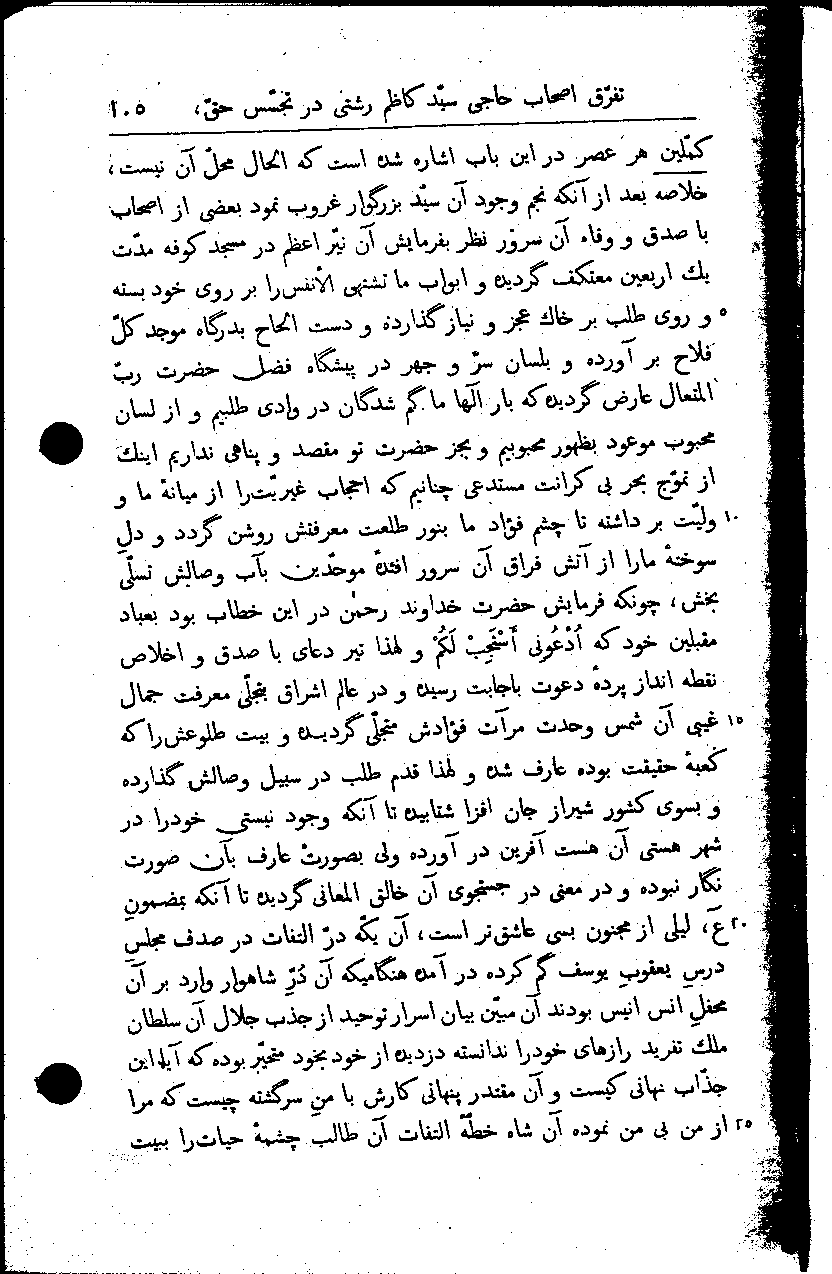 تفرّق اصحاب حاجی سیّد کاظم رشتی در تجسّس حقّ، ١٠٥
کمّلین هر عصر در این باب اشاره شده است که الحال محلّ آن نیست،
خلاصه بعد از آنکه نجم وجود آن سیّد بزرگوار غروب نمود بعضی از اصحاب
با صدق و وفاء آن سرور نظر بفرمایش آن نیّر اعظم در مسجد کوفه مدّت
یك اربعین معتکف گردیده و ابواب ما تشتهی الأنفس‌را بر روی خود بسته
٥ و روی طلب بر خاك عجز و نیاز گذارده و دست الحاح بدرگاه موجد کلّ
فلاح بر آورده و بلسان سرّ و جهر در پیشگاه فضل حضرت ربّ
المتعال عارض گردیده که بار الٓها ما گم شدگان در وادی طلبیم و از لسان
محبوب موعود بظهور محبوبیم و بجز حضرت تو مقصد و پناهی نداریم اینك
از تموّج بحر بی کرانت مستدعی چنانیم که احجاب غیریّت‌را از میانهٔ ما و
١٠ ولیّت بر داشته تا چشم فؤاد ما بنور طلعت معرفتش روشن گردد و دلِ
سوختهٔ مارا از آتش فراق آن سرور افئدهٔ موحّدین بآب وصالش تسلّی
بخش، چونکه فرمایش حضرت خداوند رحمٰن در این خطاب بود بعباد
مقبلین خود که اُدْعُونِی أَسْتَجِبْ لَکُمْ و لهٰذا تیر دعای با صدق و اخلاص
نقطه انداز پردهٔ دعوت باجابت رسیده و در عالم اشراق بتجلّی معرفت جمال
١٥ غیبی آن شمس وحدت مرآت فؤادش متجلّی گردیده و بیت طلوعش‌را که
کعبهٔ حقیقت بوده عارف شده و لهٰذا قدم طلب در سبیل وصالش گذارده
و بسوی کشور شیراز جان افزا شتابیده تا آنکه وجود نیستی خودرا در
شهر هستی آن هست آفرین در آورده ولی بصورتْ عارف بآن صورت
نگار نبوده و در معنی در جستجوی آن خالق المعانی گردیده تا آنکه بمضمونِ
٢٠ عَ، لیلی از مجنون بسی عاشق‌تر است، آن یکّه درّ التفات در صدف مجلسِ
درسِ یعقوبِ یوسف گم کرده در آمده هنگامیکه آن دُرِّ شاهوار وارد بر آن
محفلِ انس انیس بودند آن مبیّن بیان اسرار توحید از جذب جلال آن سلطان
ملك تفرید رازهای خودرا ندانسته دزدیده از خود بخود متحیّر بوده که آیا این
جذّاب نهانی کیست و آن مقتدر پنهانی کارش با منِ سرگشته چیست که مرا
٢٥ از من بی من نموده آن شاه خطّهٔ التفات آن طالب چشمهٔ حیات‌را ببیت